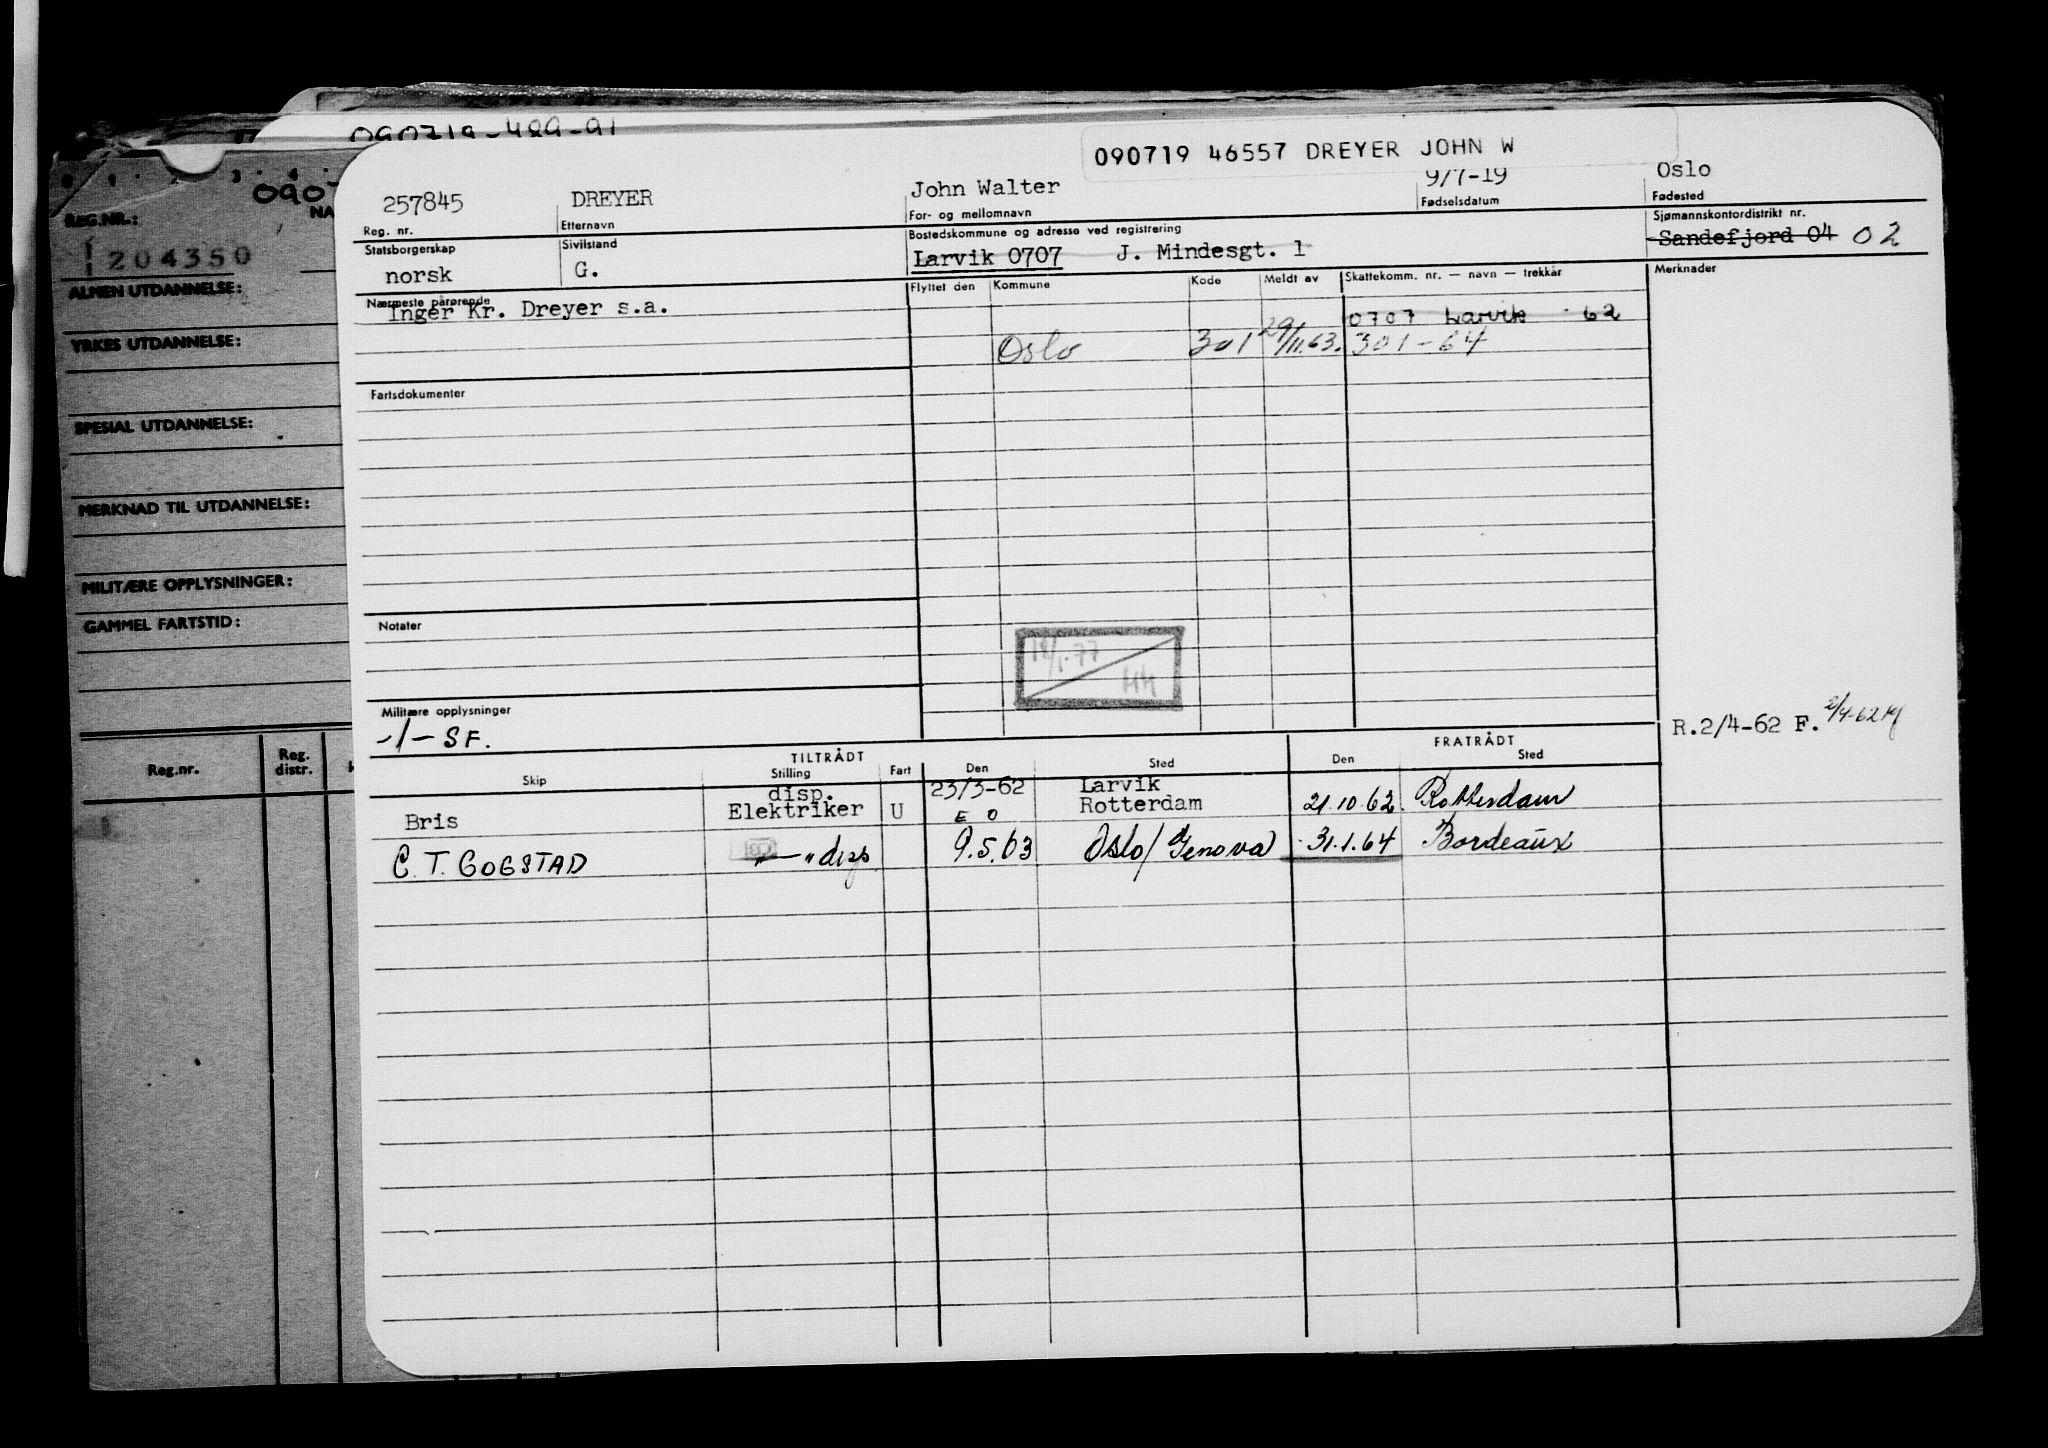 090719-489-91
090719 46557 DREYER JOHN W
257845 DREYER John Walter 9/7-19 Oslo
Reg. nr. Etternavn For- og mellomnavn Fødselsdatum Fødested
Statsborgerskap Sivilstand Bostedskommune og adresse ved registrering Sjømannskontordistrikt nr.
norsk G. Larvik 0707 J. Mindesgt. 1 Sandefjord 04 02
Nærmeste pårørende Flyttet den Kommune Kode Meldt av Skattekomm. nr. — navn — trekkår Merknader
Inger Kr. Dreyer s.a. 0707 Larvik 62
Oslo 301 29/11.63. 301-64
Fartsdokumenter
Notater
18/1.77
HH
Militære opplysninger
-1- SF. R.2/4-62 F.
TILTRÅDT FRATRÅDT
Skip Stilling Fart Den Sted Den Sted
disp. 23/3-62 Larvik
Bris Elektriker U E O Rotterdam 21.10.62. Rotterdam
C. T. GOGSTAD —"— disp 9.5.63 Oslo/Genova 31.1.64 Bordeaux
0 1 2 3 4
090
REG.NR.: NA
204350
ALMEN UTDANNELSE:
YRKES UTDANNELSE:
SPESIAL UTDANNELSE:
MERKNAD TIL UTDANNELSE:
MILITÆRE OPPLYSNINGER:
GAMMEL FARTSTID:
Reg.nr. Reg. distr.